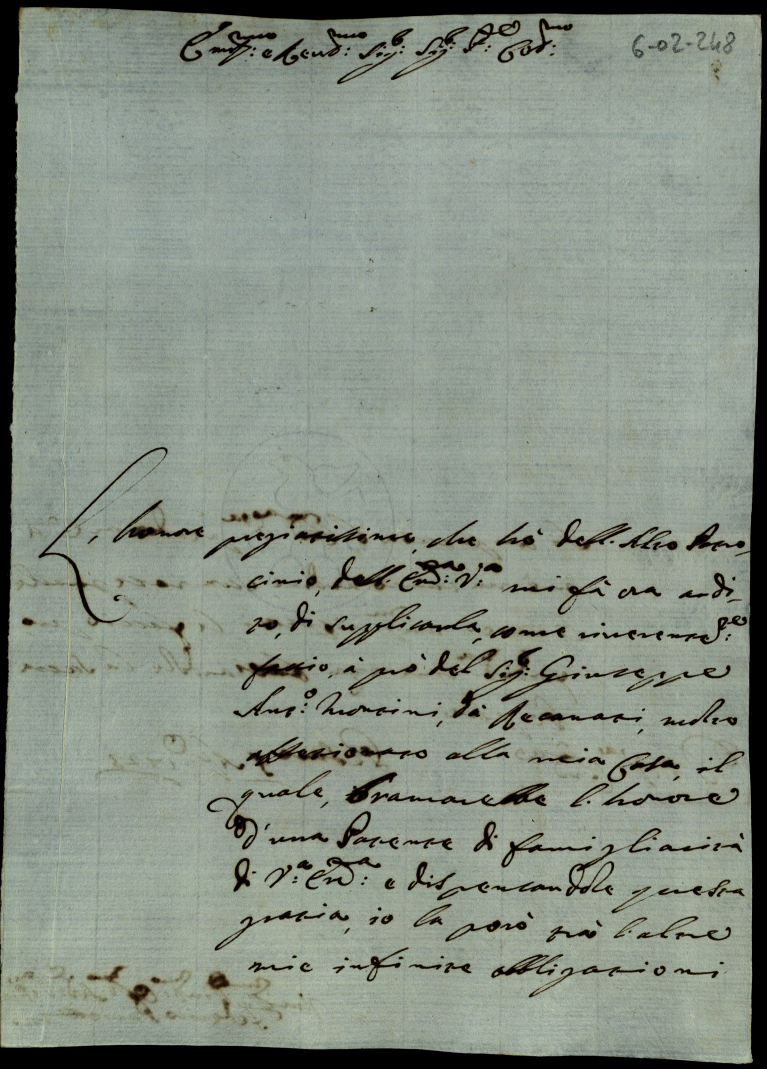 6-02-248
Em.mo: e Reud.mo: Sig.r: Sig.r P.ne: Col.mo:
L'honore pregiatissimo, che hò dell'Alto Patro-
cinio, dell'Em.a: V.a: mi fà ora ardi-
to, di supplicarla, come riverentem.te:
faccio, à prò del Sig.r Giuseppe
Ant.o: Monzini, dà Recanati, molto
affezionato alla mia Casa, il
quale, bramarebbe l'honore
d'una Patente di famigliarità
di V.a: Em.a: e dispensandole questa
grazia, io la porò trà l'altre
mie infinite obligazioni